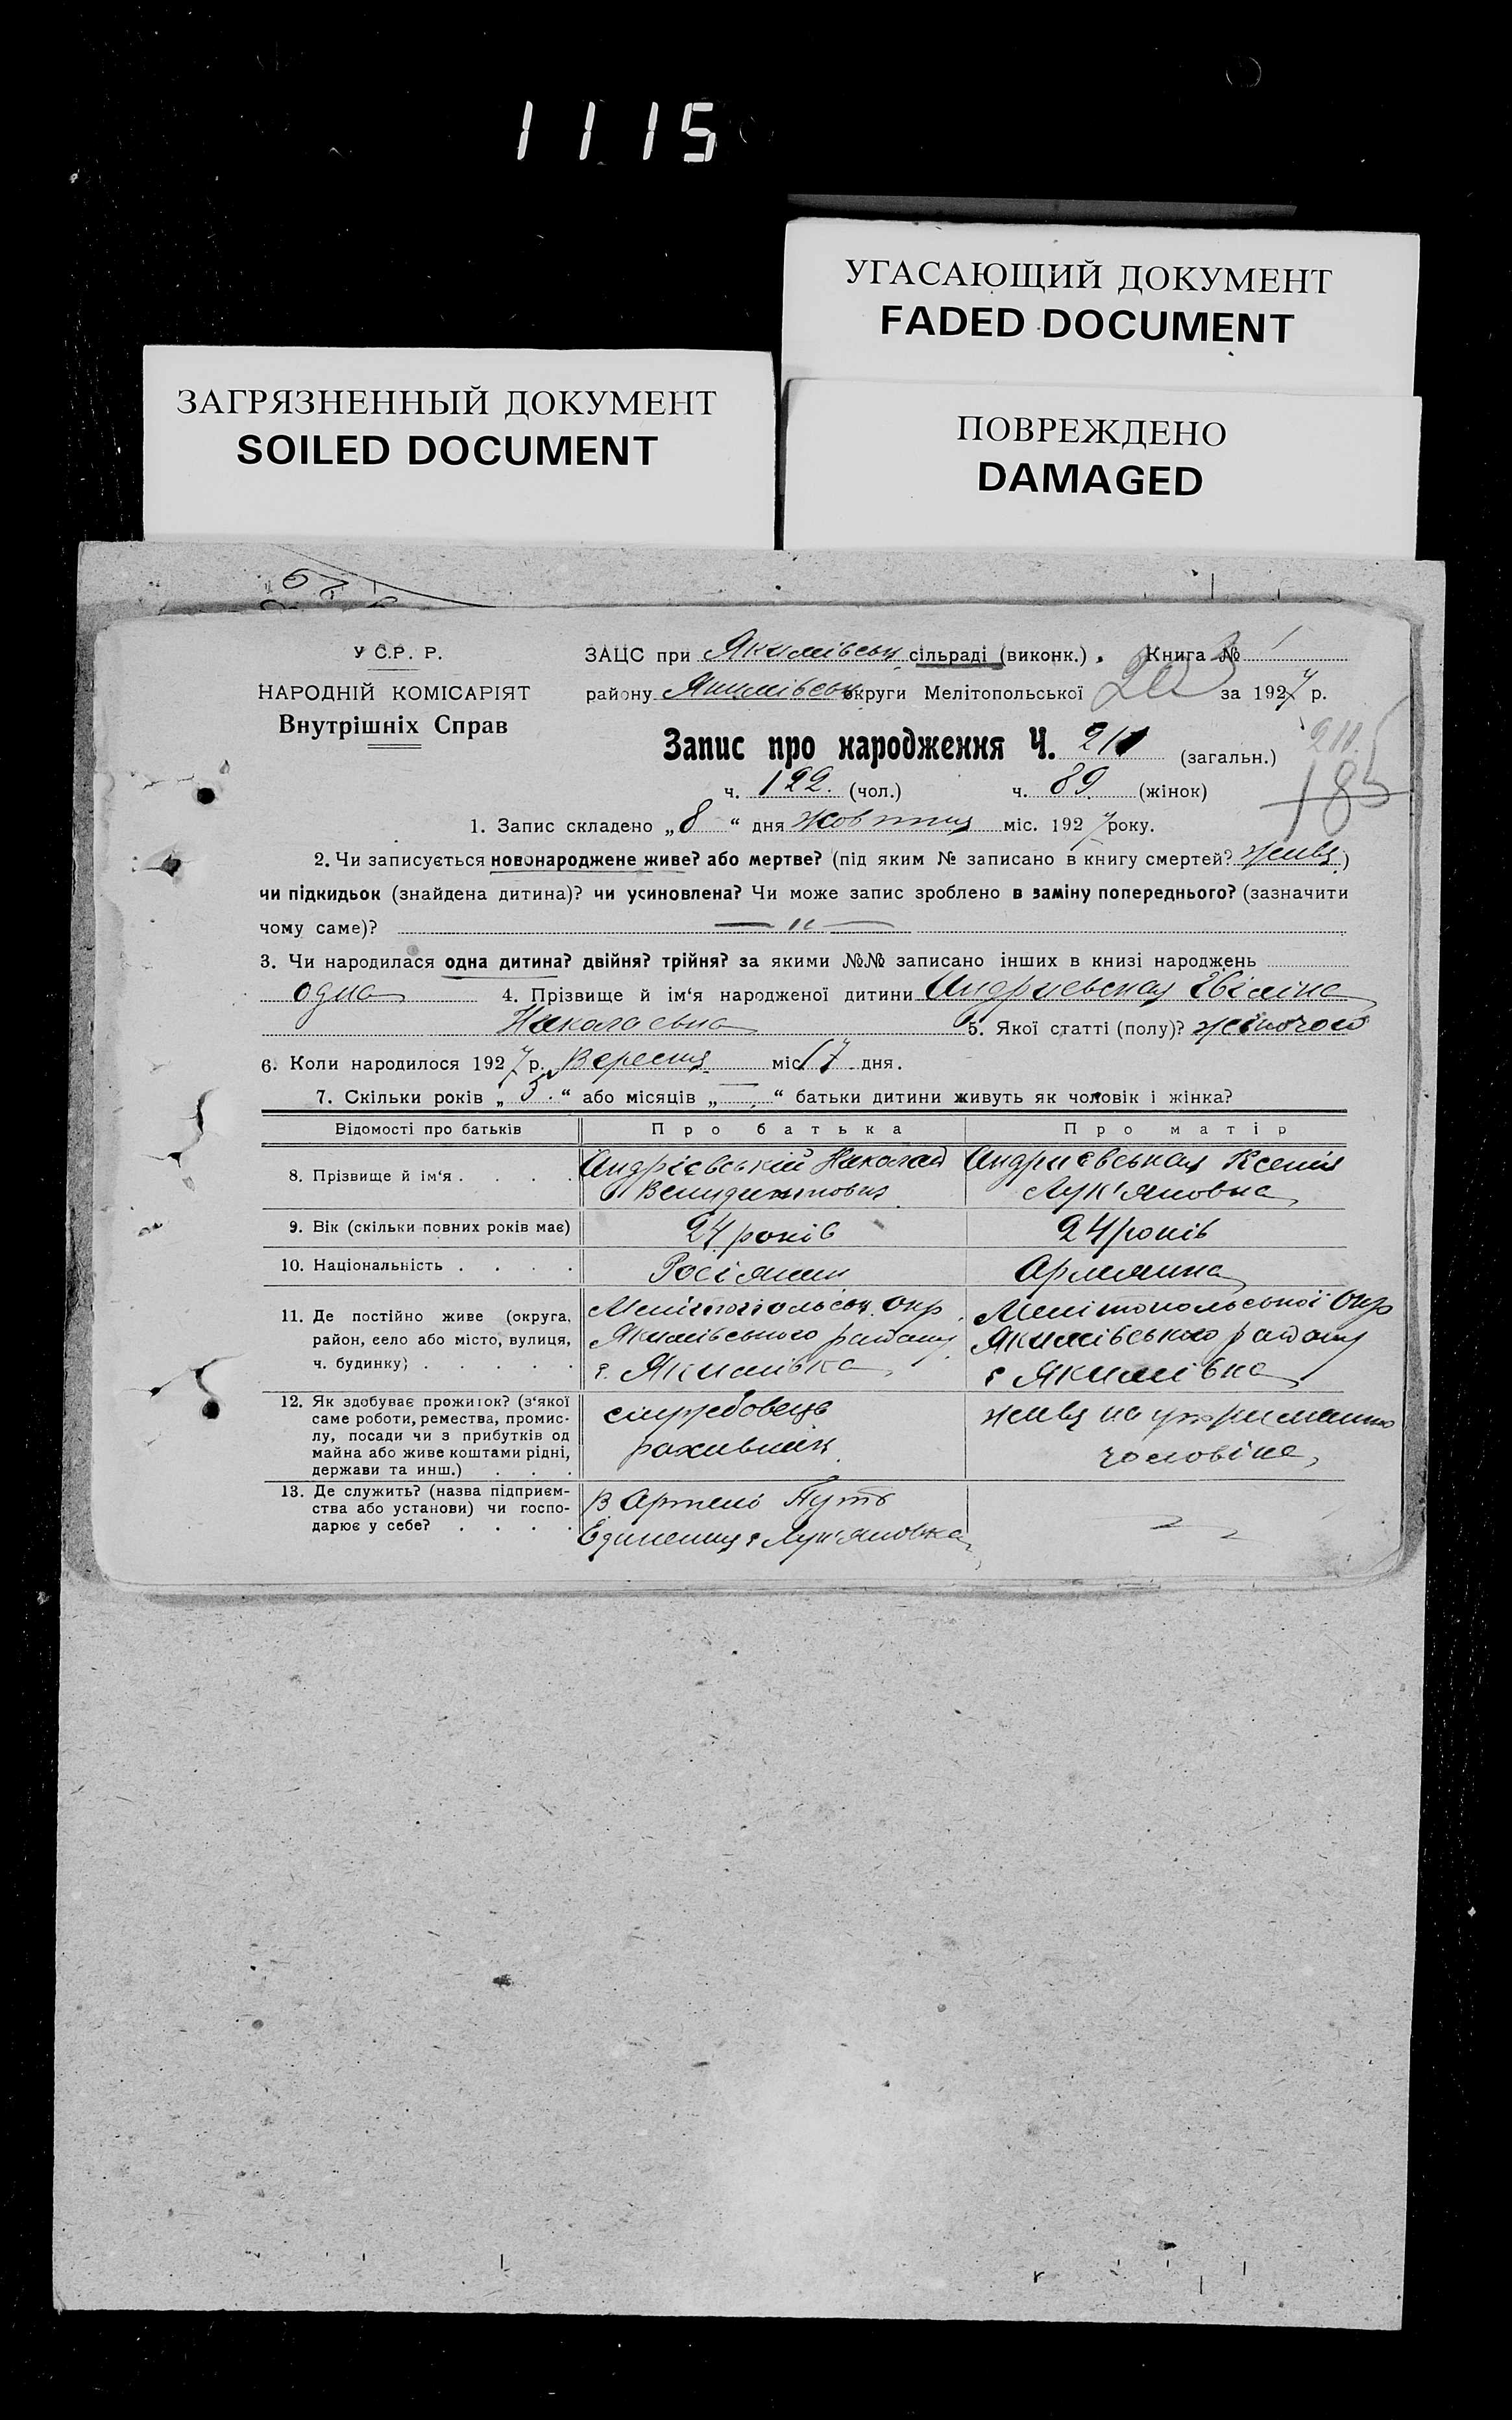 1115
УГАСАЮЩИЙ ДОКУМЕНТ
FADED DOCUMENT
ЗАГРЯЗНЕННЫЙ ДОКУМЕНТ
SOILED DOCUMENT
ПОВРЕЖДЕНО
DAMAGED
У С.Р. Р.
НАРОДНІЙ КОМІСАРІЯТ
Внутрішніх Справ
ЗАЦС при Якимівськ сільраді (виконк.). Книга № 1
району Якимівськ округи Мелітопольської за 1927 р.
Запис про народження Ч. 211 (загальн.) 211.
ч. 122. (чол.) ч. 89 (жінок) 185
1. Запис складено „8“ дня Жовтня міс. 1927 року.
2. Чи записується новонароджене живе? або мертве? (під яким № записано в книгу смертей? живе)
чи підкидьок (знайдена дитина)? чи усиновлена? Чи може запис зроблено в заміну попереднього? (зазначити
чому саме)? — " —
3. Чи народилася одна дитина? двійня? трійня? за якими №№ записано інших в книзі народжень
одна 4. Прізвище й ім‘я народженої дитини Андриевская
Николаевна 5. Якої статті (полу)? жіночого
6. Коли народилося 1927 р. Вересня міс 17 дня.
7. Скільки років „5.“ або місяців „—“ батьки дитини живуть як чоловік і жінка?
Відомості про батьків Про батька Про матір
8. Прізвище й ім‘я . . . . Андрієвський Николай Андриєвськая Ксенія
Лук'яновна
9. Вік (скільки повних років має) 24 років 24 років
10. Національність . . . . Росіянин Армянка
11. Де постійно живе (округа, район, село або місто, вулиця, ч. будинку) . . . . .
Мелітопольськ. Окр. Мелітопольської Окр
Якимівського району Якимівського району
с. Якимівка с Якимівка
12. Як здобуває прожиток? (з‘якої саме роботи, ремества, промислу, посади чи з прибутків од майна або живе коштами рідні, держави та инш.) . . .
службовець живе на утриманню
рахивник чоловіка,
13. Де служить? (назва підприємства або установи) чи господарює у себе? . . . .
В Артели Путь
Единения с Лук'яновка